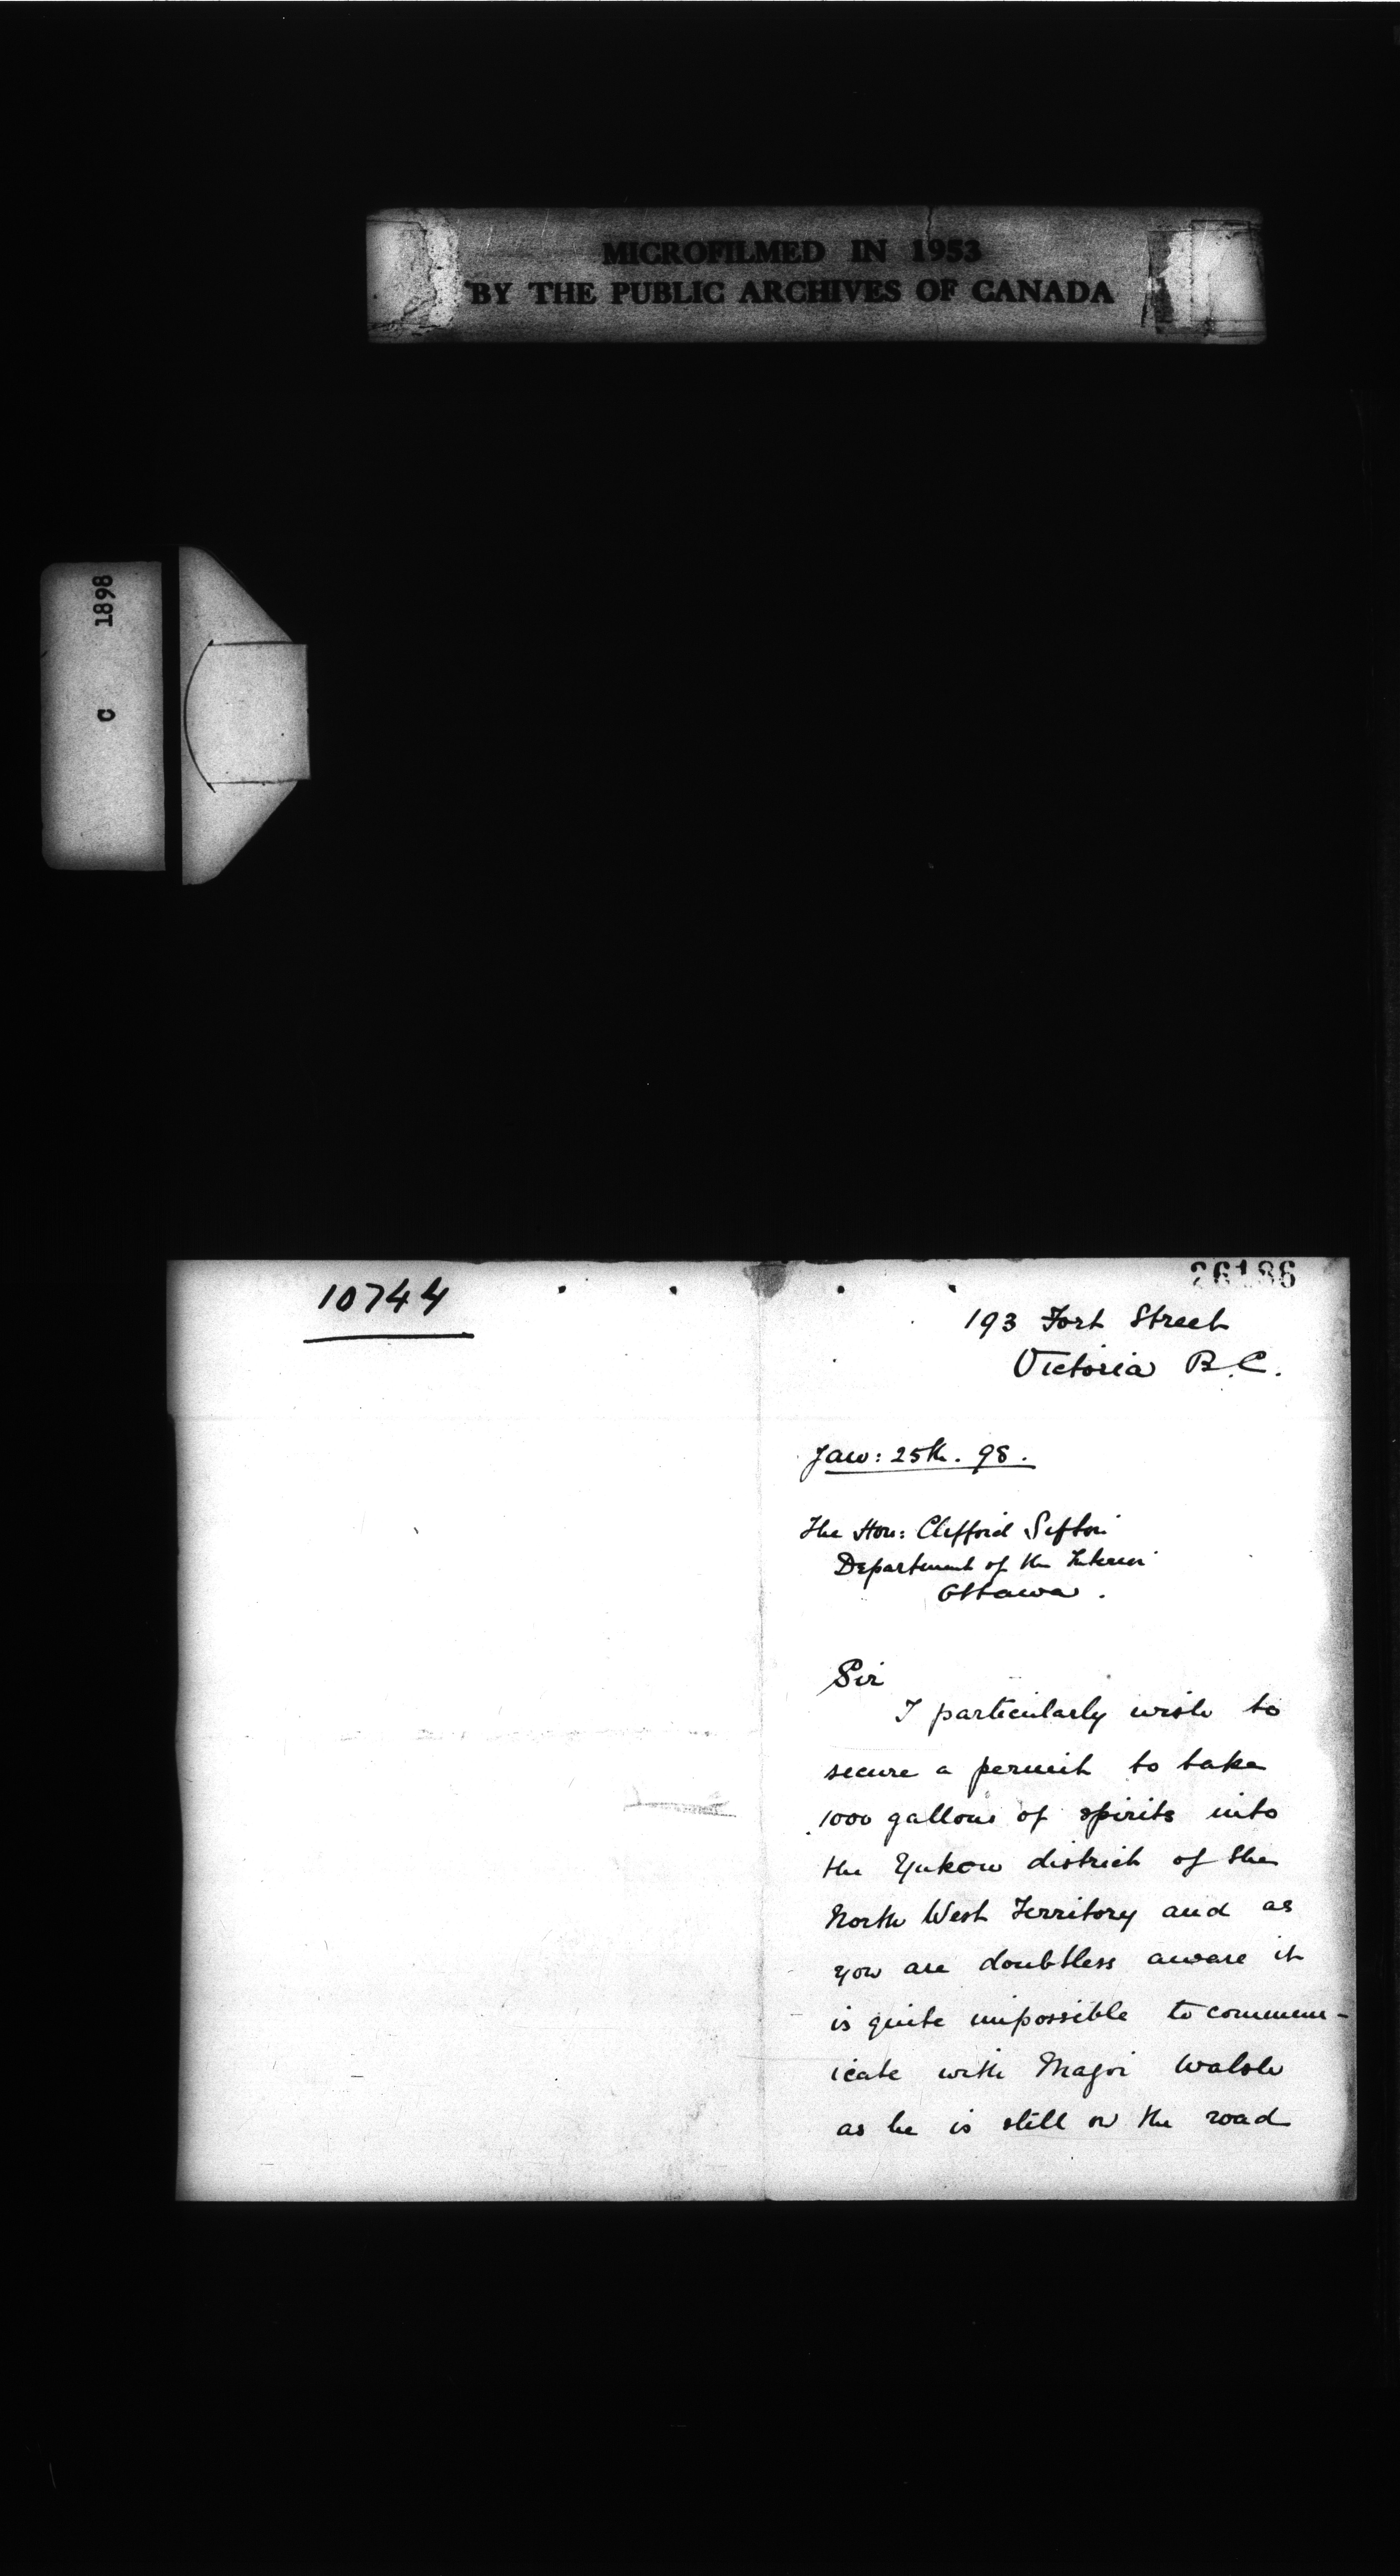 MICROFILMED IN 1953
BY THE PUBLIC ARCHIVES OF CANADA
C 1898
10744
26186
193 Fort Street
Victoria B.C.
Jan: 25th. 98.
The Hon: Clifford Sifton
Department of the Interior
Ottawa.
Sir
I particularly wish to
secure a permit to take
1000 gallons of spirits into
the Yukon district of the
North West Territory and as
you are doubtless aware it
is quite impossible to commun-
icate with Major Walsh
as he is still on the road